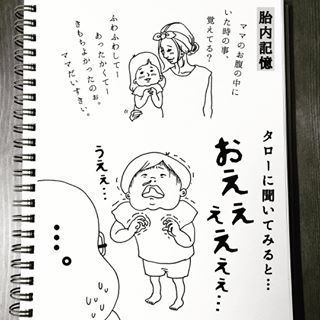 胎内記憶
ママのお腹の中に
いた時の事
覚えてる？
ふわふわしてー
あったかくてー
きもちよかったのぉ。
ママだいすきぃ。
タローに聞いてみると…
おえぇ
ぇえぇぇ…
うえぇ…
…。